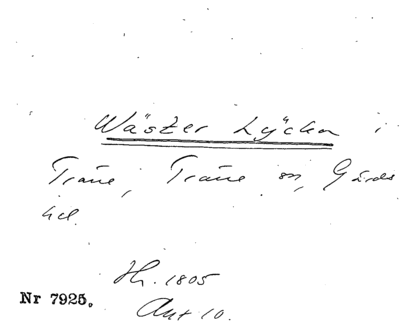 Wäster Lÿckan i
Träne, Träne sn, Gärds
hd.
Hr. 1805
Akt 10.
Nr 7925.